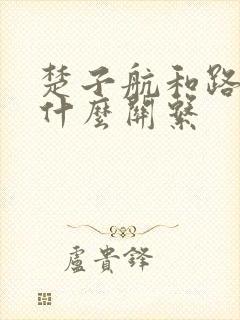 楚子航和路
什麼關繫
盧貴鋒